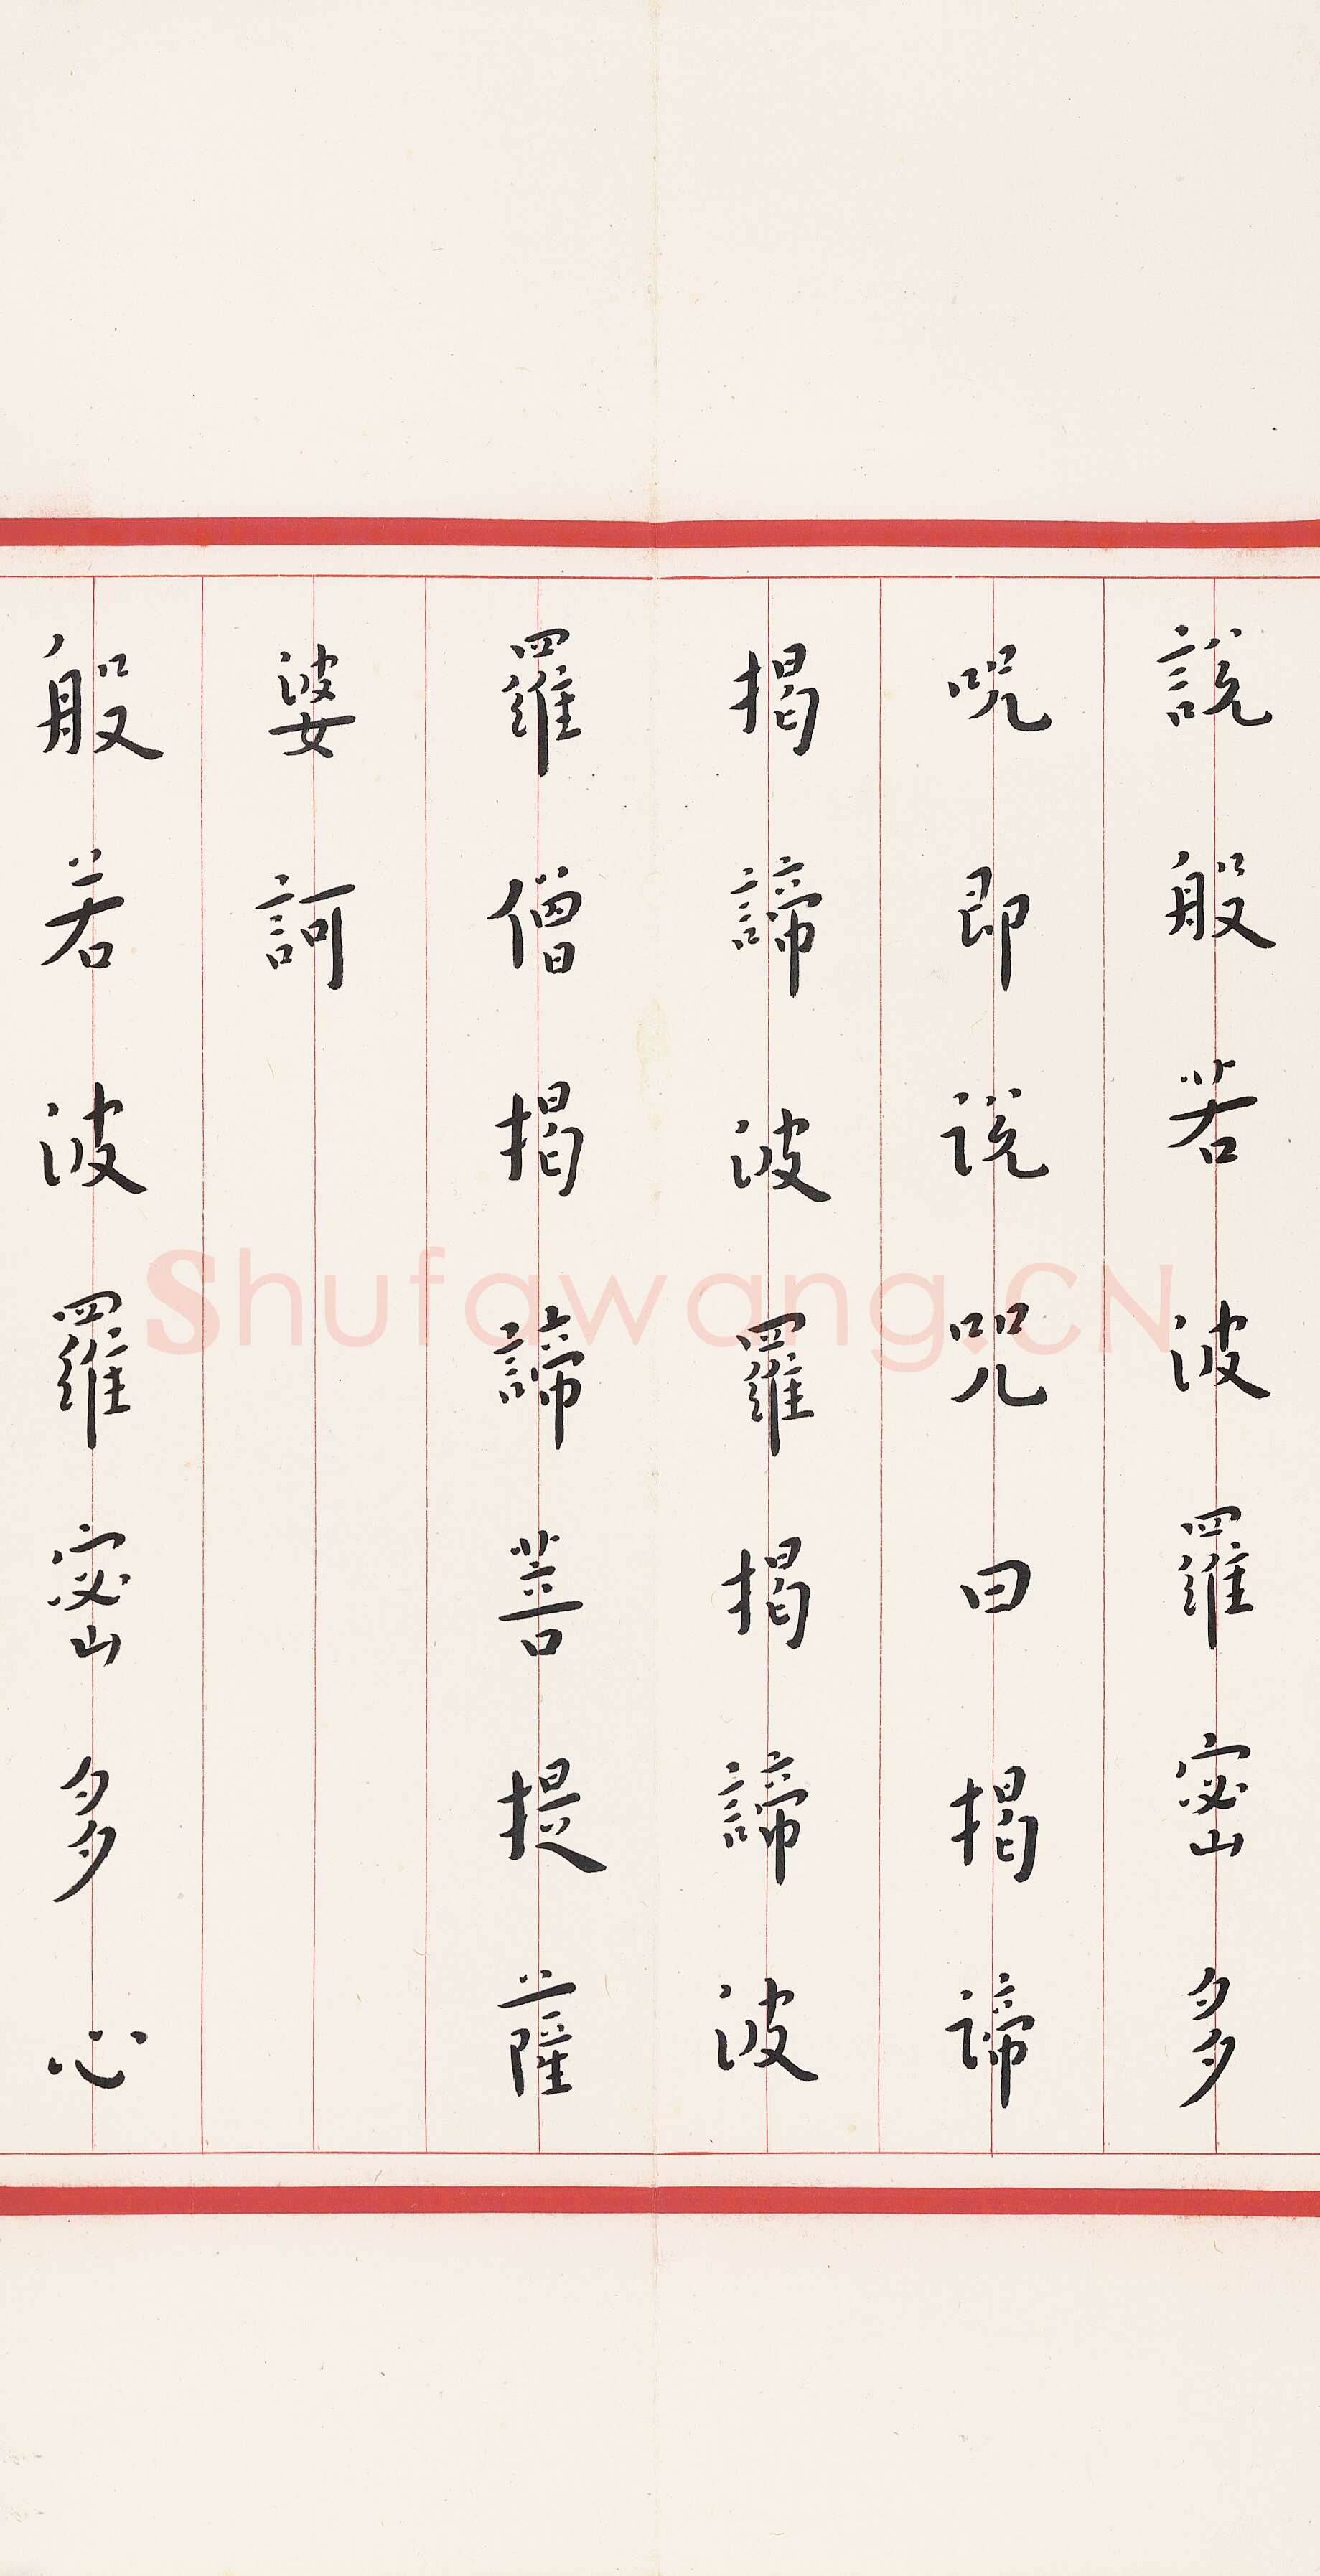 說般若波羅蜜多
呪即說咒曰揭諦
揭諦波羅揭諦波
羅僧揭諦菩提薩
婆訶
般若波羅蜜多心
Shufawang.CN